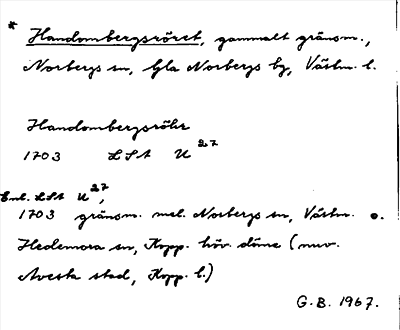 * Handombergsröret, gammalt gränsm.,
Norbergs sn, Gla Norbergs by, Västm. l.
Handombergsröhr
1703 LSA U27
Enl. LSA U27,
1703 gränsm. mel. Norbergs sn, Västm. o.
Hedemora sn, Kopp. höv. döme (nuv.
Avesta stad, Kopp. l.)
G.B. 1967.